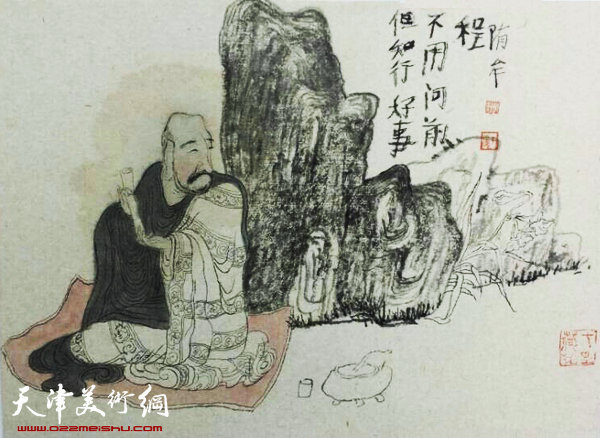 但知行好事
不用问前
程
隋牟
天津美術網
www.022meishu.com